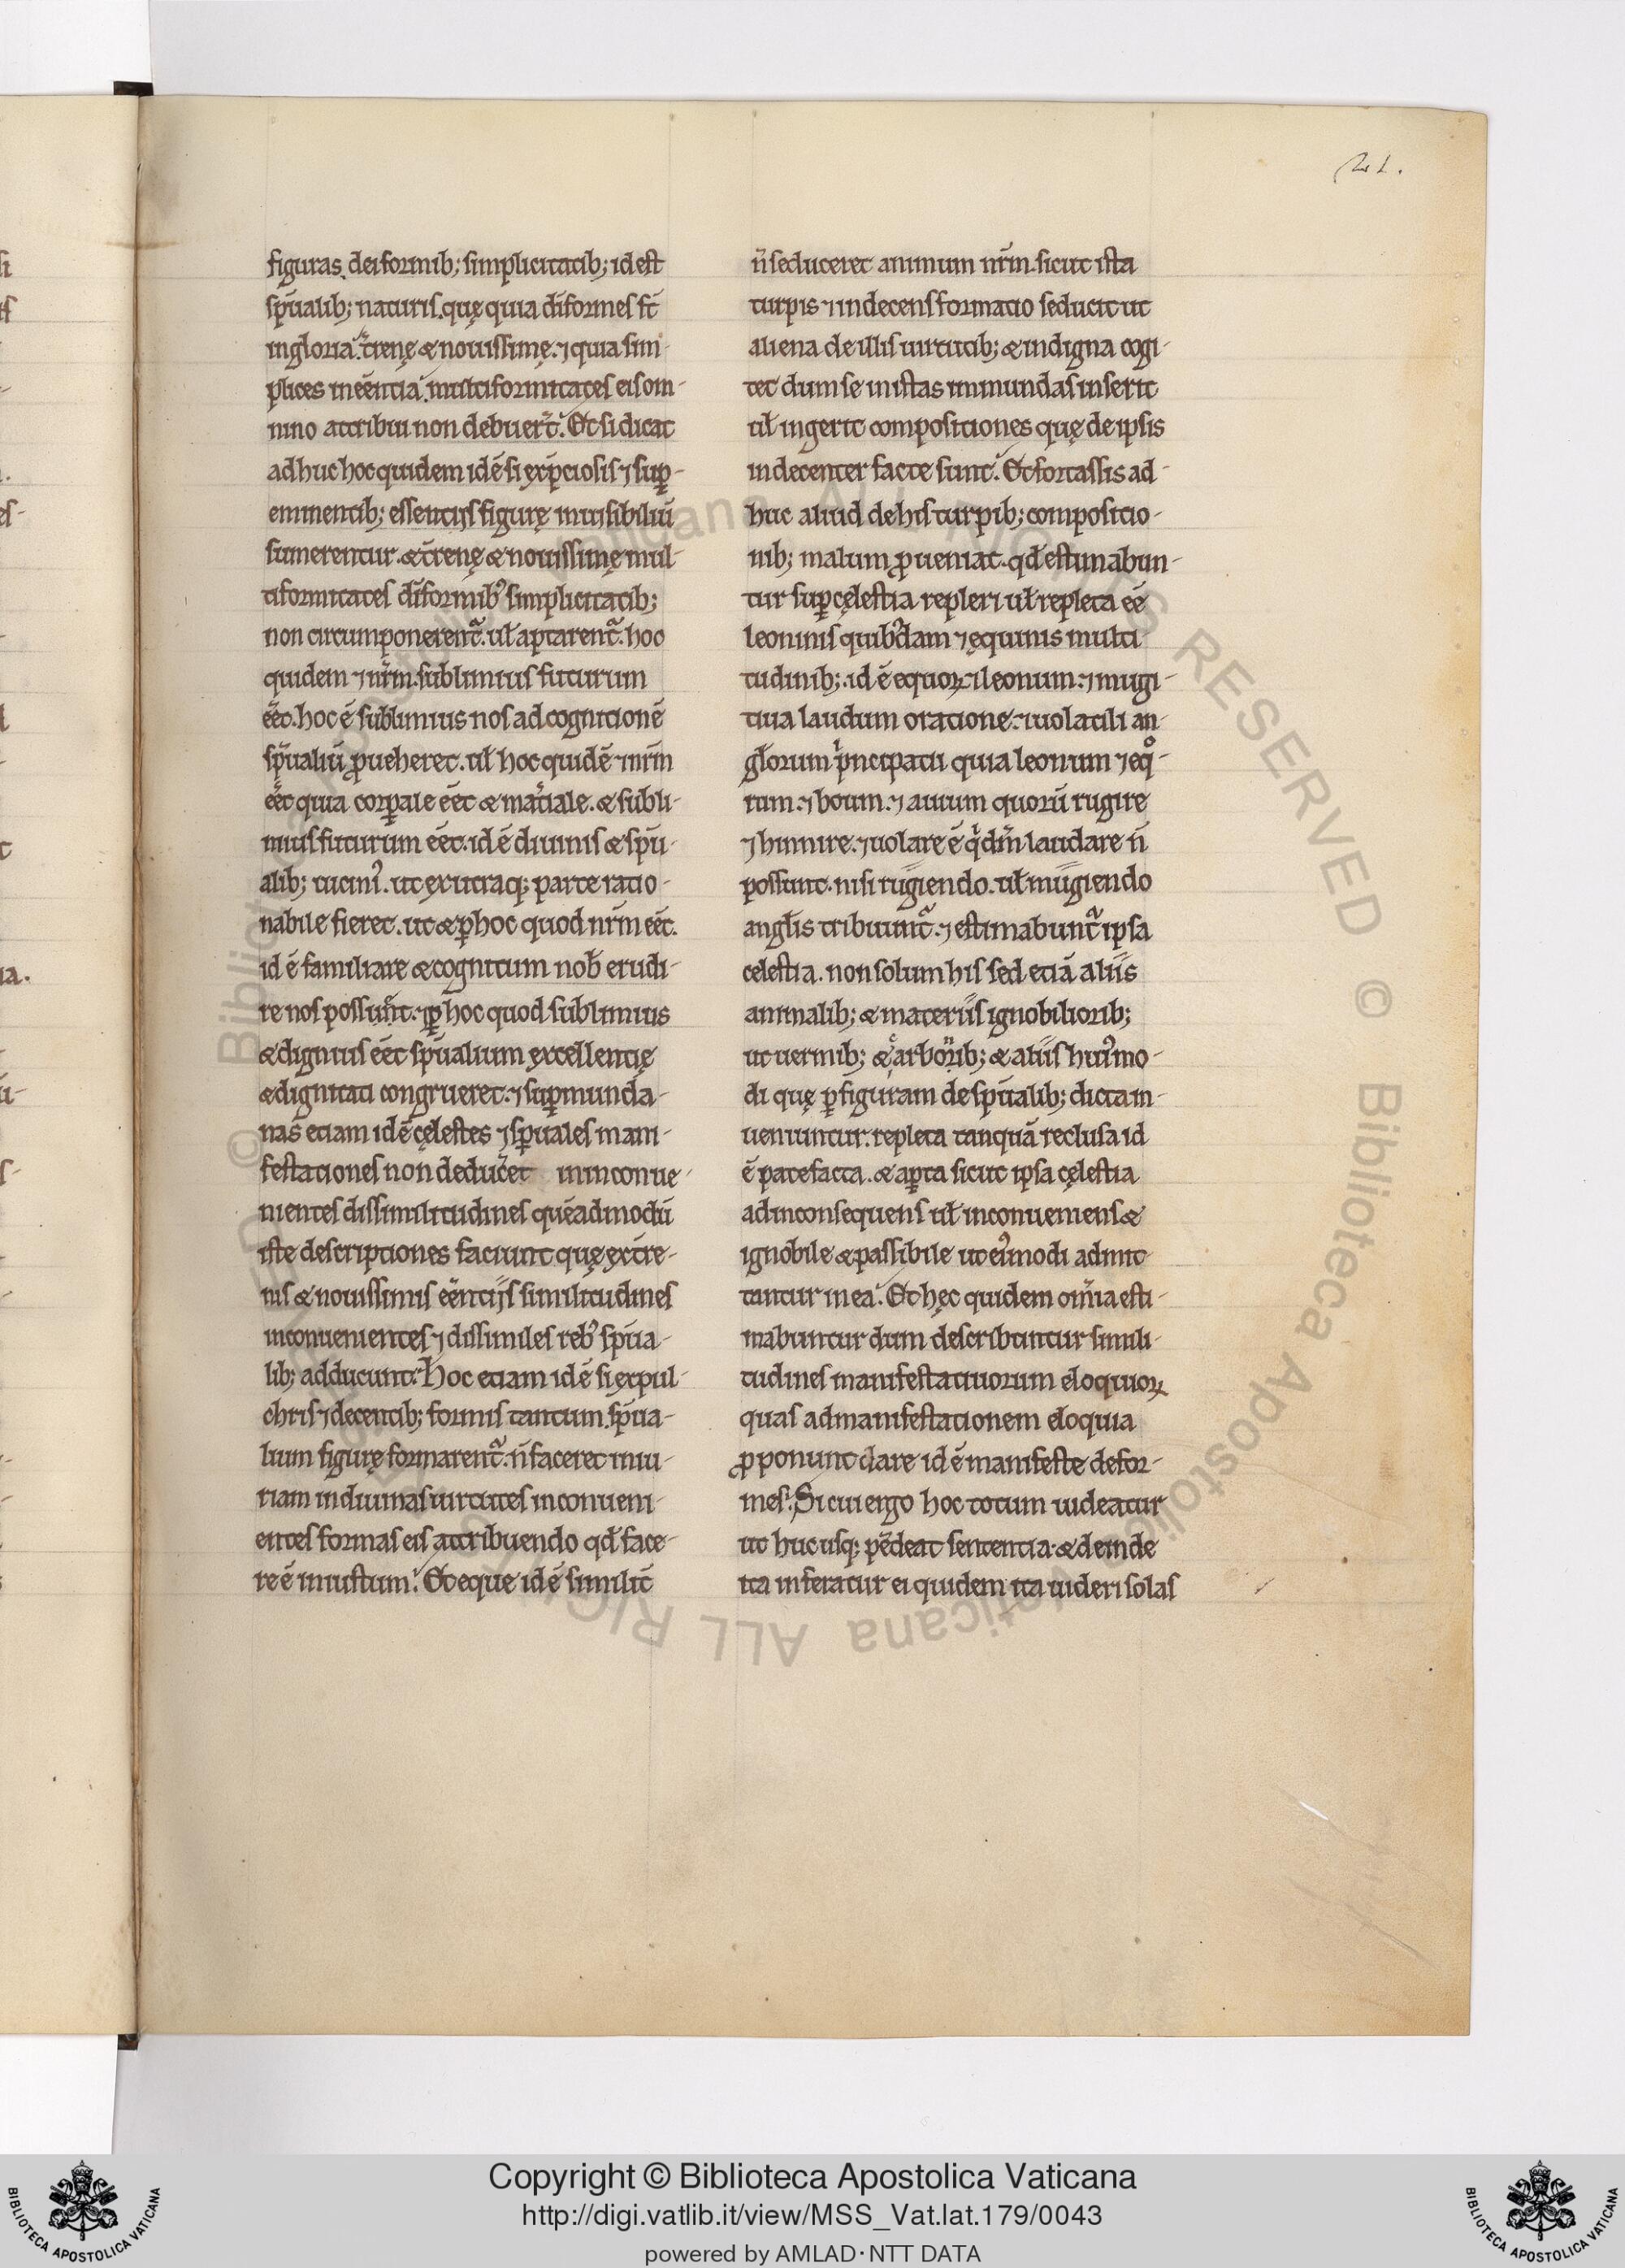 21.
figuras. deiformib; simplicitatib; id est
sp̅ualib; naturis. quę quia di̅formes st̅
ingloria. t̅renę & nouissimę. ⁊ quia sim-
plices in ee̅ntia. multiformitates eis om-
nino attribui non debuer̅t. Et si dicat
adhuc hoc quidem id e̅ si ex p̅ciosis ⁊ sup̱-
eminentib; essentijs figurę inuisibiliu̅
sumerentur. & t̅renę & nouissimę mul-
tiformitates di̅formib᾿ simplicitatib;
non circumponerent᷑. ul̅ aptarent᷑. hoc
quidem ⁊ nr̅m. sublimius futurum
ee̅t. hoc e̅ sublimius nos ad cognitione̅
sp̅ualiu̅ ꝓueheret. ul̅ hoc quide̅ ⁊ nr̅m
ee̅t quia corꝑale ee̅t & mat̅iale. & subli-
mius futurum ee̅t. id e̅ diuinis & sp̅u-
alib; uicini᾿. ut ex utraq; parte ratio-
nabile fieret. ut & ꝑ hoc quod nr̅m ee̅t.
id e̅ familiare & cognitum nob̅ erudi-
re nos possunt. ⁊ ꝑ hoc quod sublimius
& dignius ee̅t sp̅ualium excellentię
& dignitati congrueret. ⁊ suꝑmunda-
nas etiam id e̅ cęlestes ⁊ sp̅uales mani-
festationes non deducer̅et in inconue-
nientes dissimilitudines que̅admodu̅
iste descriptiones faciunt quę extre-
nis & nouissimis ee̅ntijs similitudines
inconuenientes ⁊ dissimiles reb᾿ sp̅ua-
lib; adducunt. Hoc etiam id e̅ si ex pul-
chris ⁊ decentib; formis tantum sp̅ua-
lium figurę formarent᷑. n̅ faceret iniu-
riam in diuinas uirtutes inconueni-
entes formas eis attribuendo qd̅ face-
re e̅ iniustum. Et eque id e̅ similit̅
n̅ seduceret animum nr̅m. sicut ista
turpis ⁊ indecens formatio seducit ut
aliena de illis uirtutib; & indigna cogi-
tet dum se in istas immundas inserit
ul̅ ingerit compositiones quę de ipsis
indecenter facte sunt. Et fortassis ad-
huc aliud de his turpib; compositio-
nib; malum ꝓueniat. qd̅ estimabun-
tur suꝑcęlestia repleri ul̅ repleta ee̅
leoninis quib᾿dam ⁊ ęquinis multi-
tudinib;. id e̅ equoꝝ ⁊ leonum. ⁊ mugi-
tiua laudum oratione. ⁊ uolatili an-
gl̅orum pͥncipatu quia leonum ⁊ eqͦ-
rum. ⁊ boum. ⁊ auium quoru̅ rugire
⁊ hinnire. ⁊ uolare e̅ qͥdm̅ laudare n̅
possunt. nisi rugiendo. ul̅ mugiendo
angl̅is tribuunt᷑. ⁊ estimabunt᷑ ipsa
celestia. non solum his sed etia̅ aliis
animalib; & materiis ignobiliorib;
ut uermib; & arborib; & aliis hui᾿mo-
di quę ꝑ figuram de sp̅ualib; dicta in-
ueniuntur. repleta tanqua̅ reclusa id
e̅ patefacta. & aꝑta sicut ipsa cęlestia
ad inconsequens ul̅ inconueniens &
ignobile & passibile ut ei᾿modi admit-
tantur in ea. Et hęc quidem om̅ia esti-
mabuntur dum describuntur simili-
tudines manifestatiuorum eloquioꝝ
quas ad manifestationem eloquia
ꝓponunt clare id e̅ manifeste defor-
mes. Si cui ergo hoc totum uideatur
ut huc usq; pe̅deat sententia. & deinde
ita inferatur ei quidem ita uideri solas
Copyright © Biblioteca Apostolica Vaticana
http://digi.vatlib.it/view/MSS_Vat.lat.179/0043
powered by AMLAD·NTT DATA
BIBLIOTECA APOSTOLICA VATICANA
BIBLIOTECA APOSTOLICA VATICANA